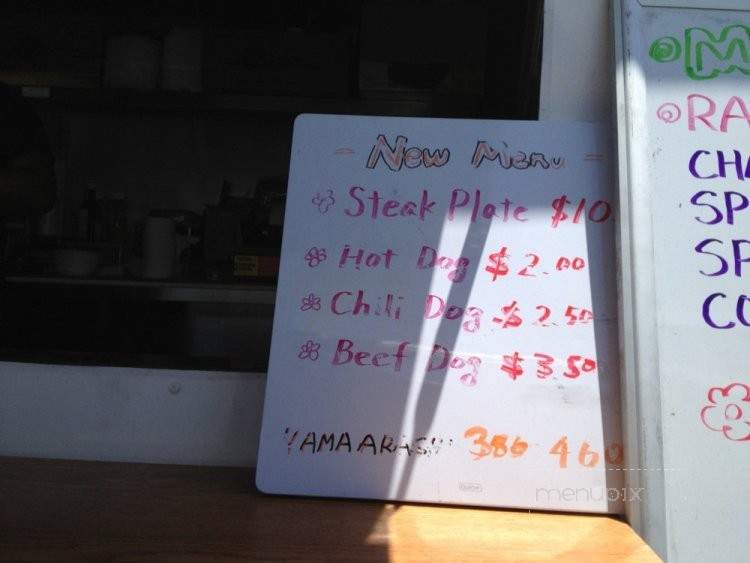 New Menu
Steak Plate $10
Hot Dog $2.00
Chili Dog $2.50
Beef Dog $3.50
YAMAARASHI 386 460
M
RA
CHA
SP
SP
CO
menupix